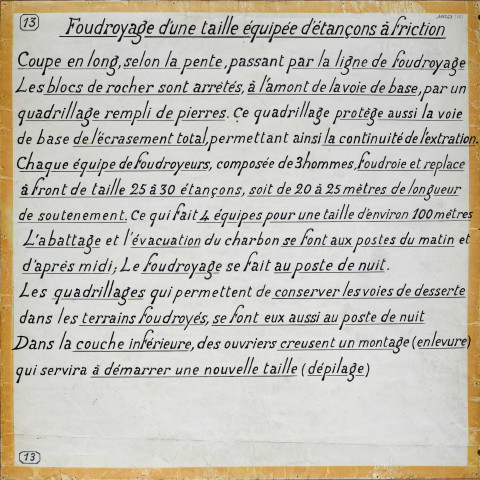 13
Foudroyage d'une taille équipée d'étançons à friction
Coupe en long, selon la pente, passant par la ligne de foudroyage
Les blocs de rocher sont arrêtés, à l'amont de la voie de base, par un
quadrillage rempli de pierres. Ce quadrillage protège aussi la voie
de base de l'écrasement total, permettant ainsi la continuité de l'extration.
Chaque équipe de foudroyeurs, composée de 3 hommes, foudroie et replace
à front de taille 25 à 30 étançons, soit de 20 à 25 mètres de longueur
de soutenement. Ce qui fait 4 équipes pour une taille d'environ 100 mètres
L'abattage et l'évacuation du charbon se font aux postes du matin et
d'après midi; Le foudroyage se fait au poste de nuit.
Les quadrillages qui permettent de conserver les voies de desserte
dans les terrains foudroyés, se font eux aussi au poste de nuit
Dans la couche inférieure, des ouvriers creusent un montage (enlevure)
qui servira à démarrer une nouvelle taille (dépilage)
13